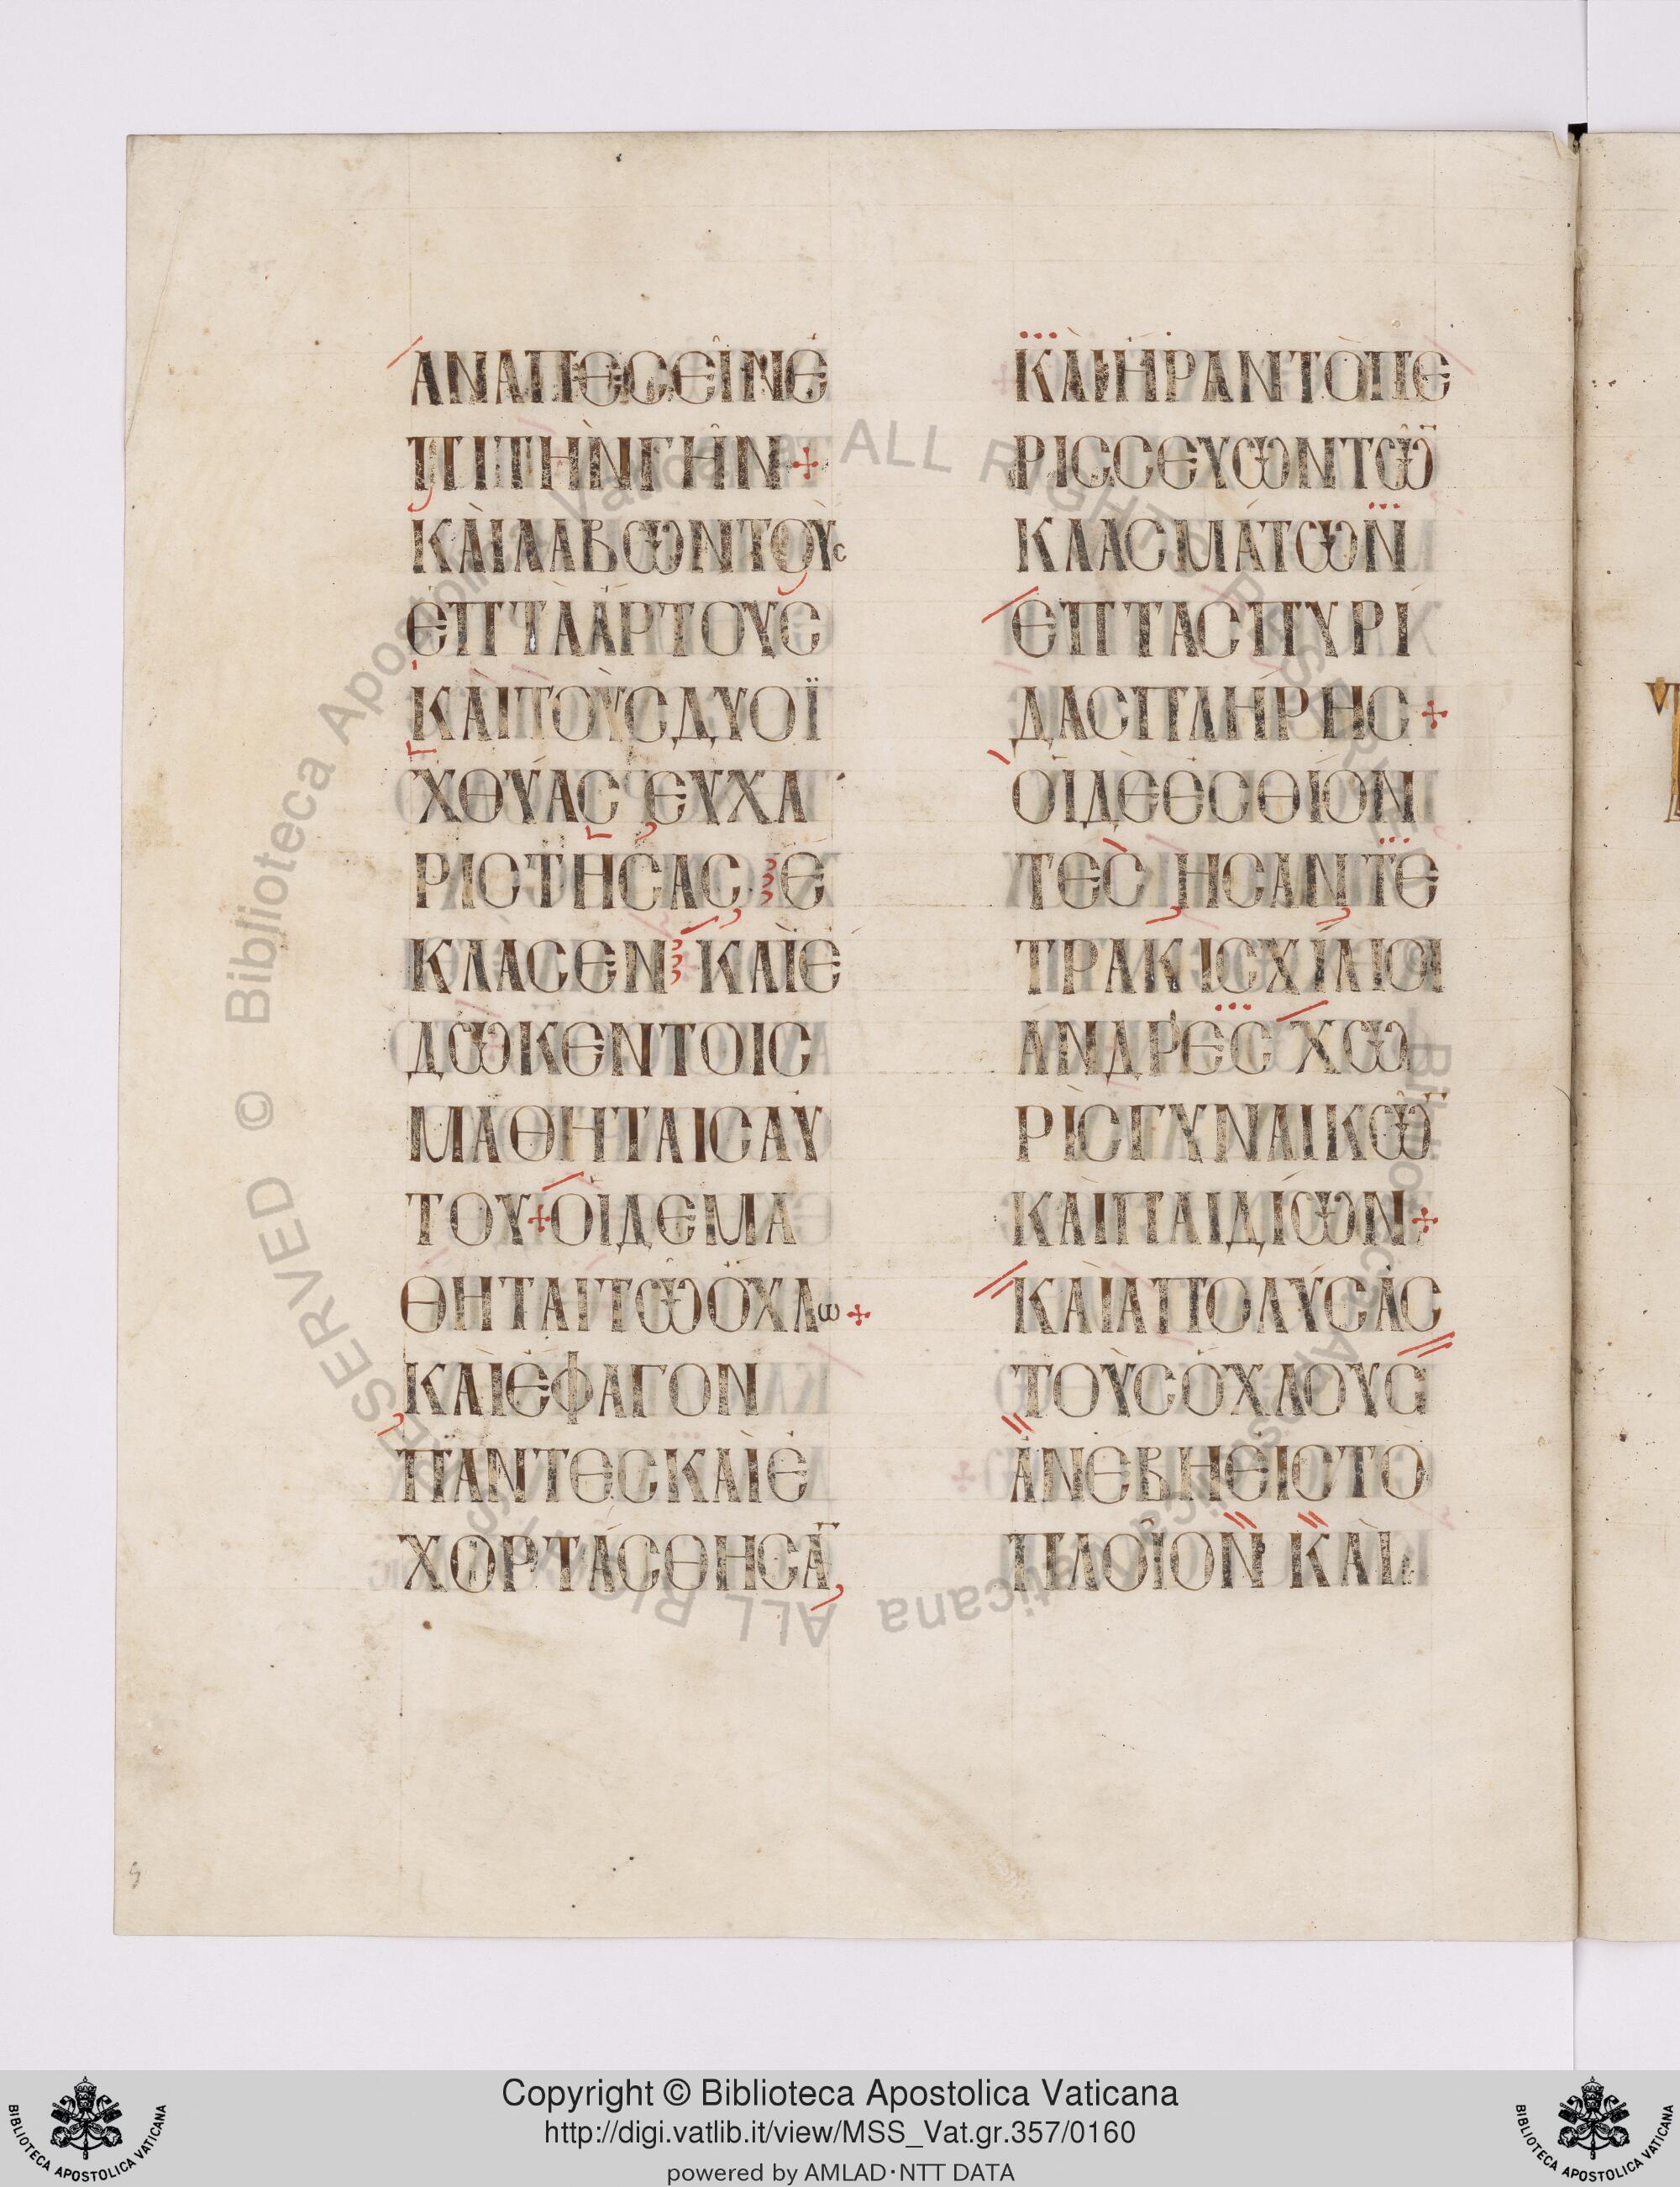 ΑΝΑΠΕϹΕΙ͂ΝΕ
ΠΙΤῊΝΓΗ͂Ν+
ΚΑῚΛΑΒῺΝΤΟῪϲ
ἙΠΤΑἌΡΤΟΥϹ
ΚΑῚΤΟῪϹΔΥΟΪ
ΧΘΥΆϹ ΕΥΧΑ
ΡΙϹΤΉϹΑϹ Ἔ
ΚΛΑϹΕΝ ΚΑῚΕ
ΔΩΚΕΝΤΟΙϹ
ΜΑΘΗΤΑΙϹΑΥ
ΤΟΥ+ΟἹΔΕΜΑ
ΘΗΤΑΙΤΩ͂ΟΧΛω+
ΚΑῚΕΦΑΓΟΝ
ΠΆΝΤΕϹΚΑῚΕ
ΧΟΡΤΆϹΘΗϹᾹ
ΚΑῚΗ͂ΡΑΝΤῸΠΕ
ΡΙϹϹΕΥΩΝΤΩ̄
ΚΛΑϹΜΆΤΩΝ
ἙΠΤΑϹΠΥΡΊ
ΔΑϹΠΛΗΡΗϹ+
ΟἹΔΕΕϹΘΊΟΝ
ΤΕϹ ΗϹΑΝΤΕ
ΤΡΑΚΙϹΧΊΛΙΟΙ
ΆΝΔΡΕϹ ΧΩ
ΡῚϹΓΥΝΑΙΚΩ̄
ΚΑῚΠΑΙΔΊΩΝ+
ΚΑῚΑΠΟΛΎϹΑϹ
ΤΟῪϹΟΧΛΟΥϹ
ἈΝΕΒΗΕΙϹΤῸ
ΠΛΟΙ͂ΟΝ ΚΑῚ
© Biblioteca Apostolica Vaticana ALL RIGHTS RESERVED
© Biblioteca Apostolica Vaticana ALL RIGHTS RESERVED
Copyright © Biblioteca Apostolica Vaticana
http://digi.vatlib.it/view/MSS_Vat.gr.357/0160
powered by AMLAD·NTT DATA
BIBLIOTECA APOSTOLICA VATICANA
BIBLIOTECA APOSTOLICA VATICANA